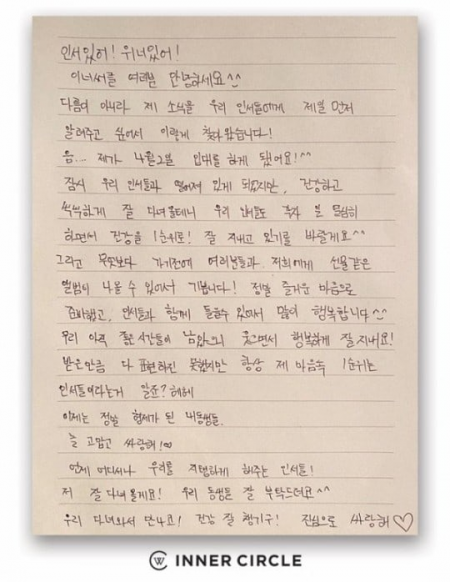 인서있어! 위너있어!
이너써클 여러분 안녕하세요^^
다름이 아니라 제 소식을 우리 인서들에게 제일 먼저
알려주고 싶어서 이렇게 찾아왔습니다!
음... 제가 4월2일 입대를 하게 됐어요!^^
잠시 우리 인서들과 떨어져 있게 되었지만, 건강하고
씩씩하게 잘 다녀올테니 우리 인서들도 각자 일 열심히
하면서 건강을 1순위로! 잘 지내고 있기를 바랄게요^^
그리고 무엇보다 가기전에 여러분들과 저희에게 선물같은
앨범이 나올 수 있어서 기쁩니다! 정말 즐거운 마음으로
준비했고, 인서들과 함께 들을수 있어서 많이 행복합니다^^
우리 아직 좋은시간들이 남았으니 웃으면서 행복하게 잘 지내요!
받은만큼 다 표현하진 못했지만 항상 제 마음속 1순위는
인서들이라는거 알죠? 헤헤
이제는 정말 형제가 된 내동생들.
늘 고맙고 싸랑해!♡
언제 어디서나 우리를 지탱하게 해주는 인서들!
저 잘 다녀올게요! 우리 동생들 잘 부탁드려요^^
우리 다녀와서 만나요! 건강 잘 챙기구! 진심으로 싸랑해♡
W INNER CIRCLE